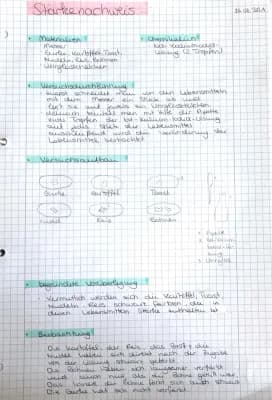 Stärkenachweis
• Materialien
Messer
Gurke, Kartoffel, Toast,
Nudeln, Reis, Bohnen
Uhrgläschen
• Chemikalien
Iod-Kaliumiodid-
Lösung (2 Tropfen)
• Versuchsdurchführung
Zuerst schneidet man von den Lebensmitteln
mit dem Messer ein Stück ab und
legt sie auf jeweils ein Uhrgläschen
danach träufelt man mit Hilfe der Pipette
zwei Tropfen der Iod-Lösung
auf jedes Stück der Lebensmittel
anschließend wird die Veränderung der
Lebensmittel beobachtet
• Versuchsaufbau
Gurke Kartoffel Toast
Nudel Reis Bohnen
• Pipette
• begründete Vorüberlegung
Vermutlich werden sich die Kartoffel, Toast,
Nudeln, Reis schwarz färben, da in
diesen Lebensmitteln Stärke enthalten ist
• Beobachtung
Die Kartoffel, der Reis, das Toast, die
Nudel haben sich direkt nach der Zugabe
von der Lösung schwarz gefärbt.
Die Bohnen haben sich langsamer verfärbt
Das Innere der Bohne färbt sich auch schwarz
Die Gurke hat sich nicht verfärbt